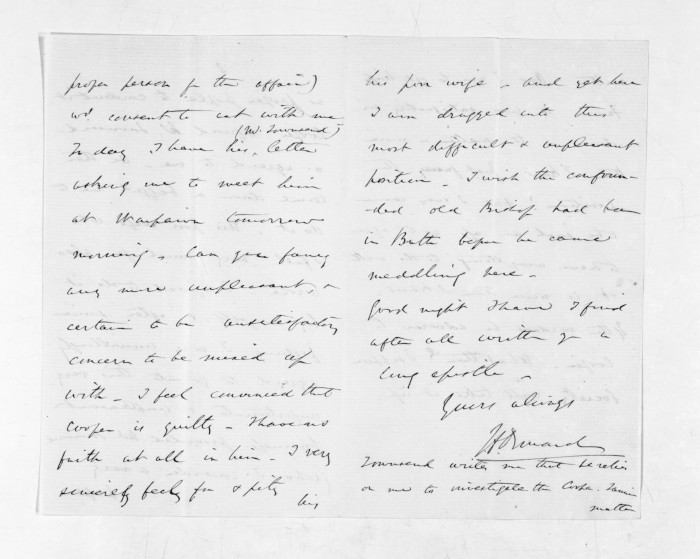 proper person for the affair)
wd. consent to act with me
(Mr. Townsend)
To day I have his letter
asking me to meet him
at Waipawa tomorrow
morning. Can you fancy
any more unpleasant, &
certain to be unsatisfactory
concern to be mixed up
with - I feel convinced that
Cooper is guilty - I have no
faith at all in him - I very
sincerely feel for & pity
his
his poor wife - and yet here
I am dragged into this
most difficult & unpleasant
position - I wish the confoun-
ded old Bishop had been
in Bath before he came
meddling here -
Good night I have I find
after all written you a
long epistle -
Yours always
Townsend writes me that he relies
on me to investigate the Cooper
matter